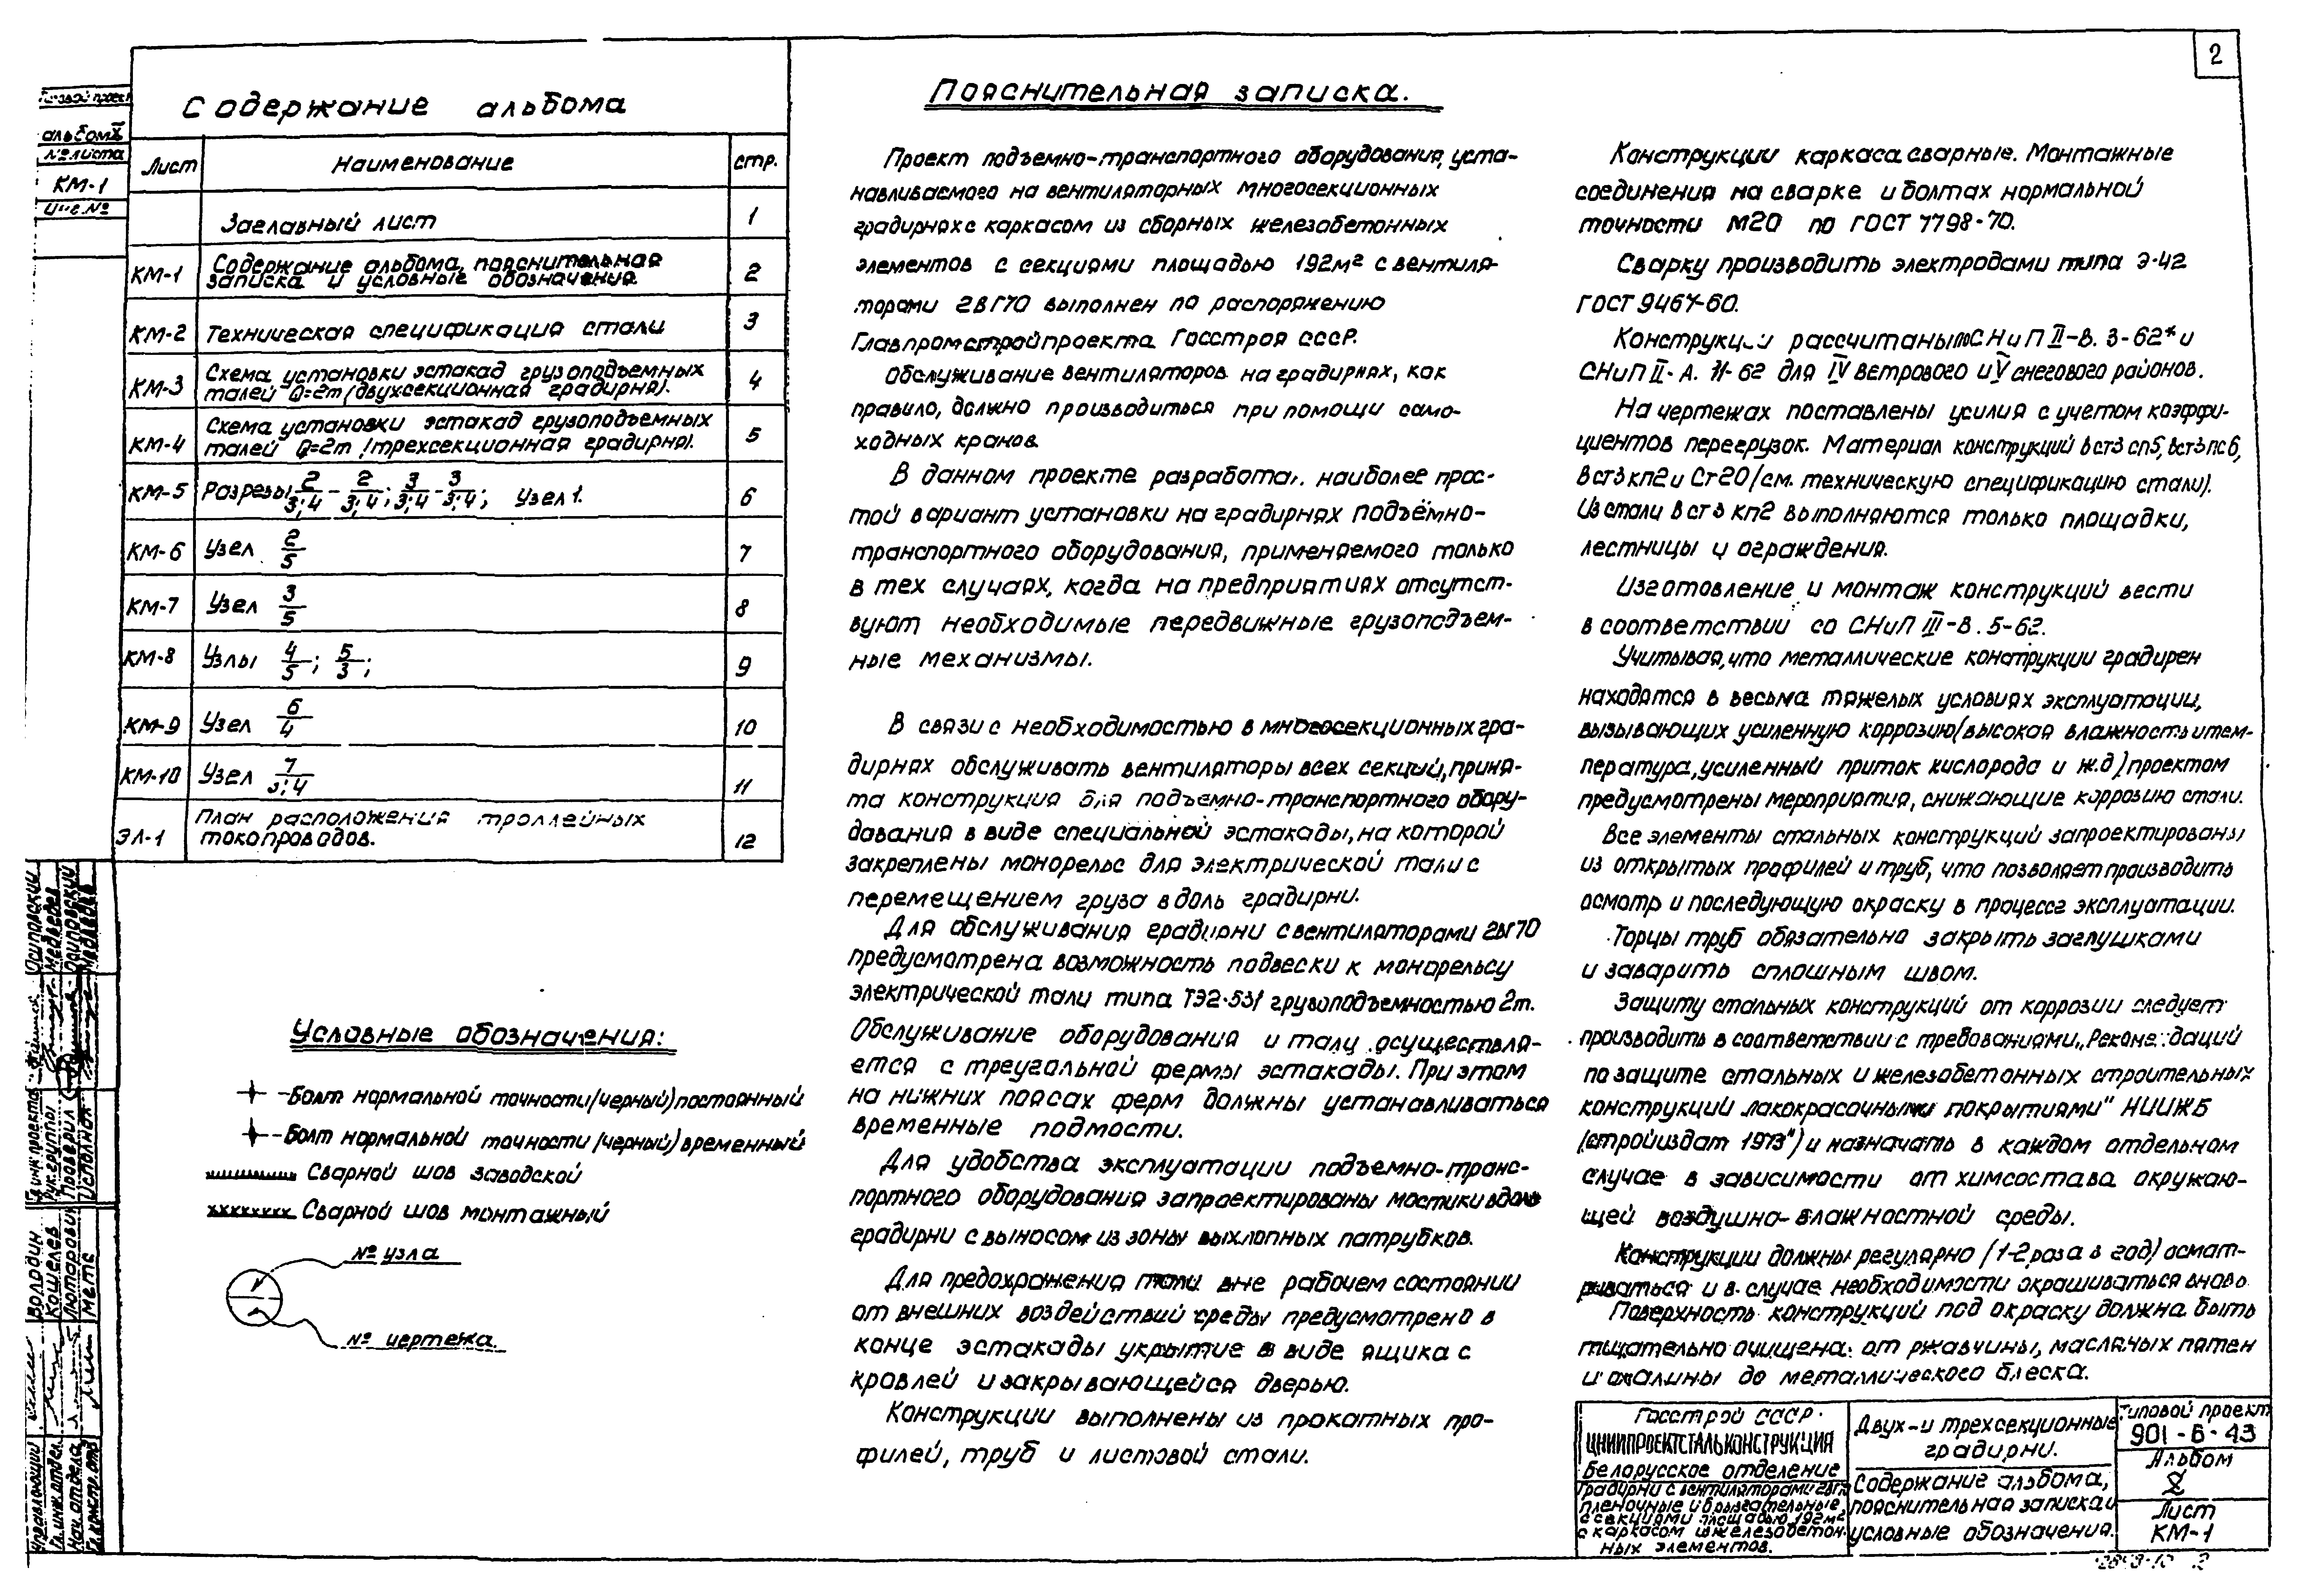 2
Типовой проект
альбом X
№ листа
КМ-1
Инв. №
Содержание альбома
Лист Наименование стр.
Заглавный лист 1
КМ-1 Содержание альбома, пояснительная записка и условные обозначения 2
КМ-2 Техническая спецификация стали 3
КМ-3 Схема установки эстакад грузоподъемных талей Q=2т (двухсекционная градирня). 4
КМ-4 Схема установки эстакад грузоподъемных талей Q=2т (трехсекционная градирня). 5
КМ-5 Разрезы 2/3;4 - 2/3;4; 3/3;4 - 3/3;4; Узел 1. 6
КМ-6 Узел 2/5 7
КМ-7 Узел 3/5 8
КМ-8 Узлы 4/5; 5/3; 9
КМ-9 Узел 6/4 10
КМ-10 Узел 7/3;4 11
ЭЛ-1 План расположения троллейных токопроводов. 12
Условные обозначения:
-Болт нормальной точности (черный) постоянный
-Болт нормальной точности (черный) временный
Сварной шов заводской
Сварной шов монтажный
№ узла
№ чертежа
Пояснительная записка.
Проект подъемно-транспортного оборудования, уста-
навливаемого на вентиляторных многосекционных
градирнях с каркасом из сборных железобетонных
элементов с секциями площадью 192м² с вентиля-
торами 2ВГ70 выполнен по распоряжению
Главпромстройпроекта Госстроя СССР.
Обслуживание вентиляторов на градирнях, как
правило, должно производиться при помощи само-
ходных кранов.
В данном проекте разработан наиболее прос-
той вариант установки на градирнях подъёмно-
транспортного оборудования, применяемого только
в тех случаях, когда на предприятиях отсутст-
вуют необходимые передвижные грузоподъем-
ные механизмы.
В связи с необходимостью в многосекционных гра-
дирнях обслуживать вентиляторы всех секций, приня-
та конструкция для подъемно-транспортного обору-
дования в виде специальной эстакады, на которой
закреплены монорельс для электрической тали с
перемещением груза вдоль градирни.
Для обслуживания градирни с вентиляторами 2ВГ70
предусмотрена возможность подвески к монорельсу
электрической тали типа ТЭ2-531 грузоподъемностью 2т.
Обслуживание оборудования и тали осуществля-
ется с треугольной фермы эстакады. При этом
на нижних поясах ферм должны устанавливаться
временные подмости.
Для удобства эксплуатации подъемно-транс-
портного оборудования запроектированы мостики вдоль
градирни с выносом из зоны выхлопных патрубков.
Для предохранения тали вне рабочем состоянии
от внешних воздействий среды предусмотрено в
конце эстакады укрытие в виде ящика с
кровлей и закрывающейся дверью.
Конструкции выполнены из прокатных про-
филей, труб и листовой стали.
Конструкции каркаса сварные. Монтажные
соединения на сварке и болтах нормальной
точности М20 по ГОСТ 7798-70.
Сварку производить электродами типа Э-42
ГОСТ 9467-60.
Конструкции рассчитаны по СНиП II-В. 3-62* и
СНиП II-А. 11-62 для IV ветрового и V снегового районов.
На чертежах поставлены усилия с учетом коэффи-
циентов перегрузок. Материал конструкций Вст3 сп5, Вст3пс6,
Вст3кп2 и Ст20 (см. техническую спецификацию стали).
Из стали Вст3 кп2 выполняются только площадки,
лестницы и ограждения.
Изготовление и монтаж конструкций вести
в соответствии со СНиП III-В. 5-62.
Учитывая, что металлические конструкции градирен
находятся в весьма тяжелых условиях эксплуатации,
вызывающих усиленную коррозию (высокая влажность и тем-
пература, усиленный приток кислорода и ж.д) проектом
предусмотрены мероприятия, снижающие коррозию стали.
Все элементы стальных конструкций запроектированы
из открытых профилей и труб, что позволяет производить
осмотр и последующую окраску в процессе эксплуатации.
Торцы труб обязательно закрыть заглушками
и заварить сплошным швом.
Защиту стальных конструкций от коррозии следует
производить в соответствии с требованиями „Рекомендаций
по защите стальных и железобетонных строительных
конструкций лакокрасочными покрытиями" НИИЖБ
(стройиздат 1973") и назначать в каждом отдельном
случае в зависимости от химсостава окружаю-
щей воздушно-влажностной среды.
Конструкции должны регулярно (1-2 раза в год) осмат-
риваться и в случае необходимости окрашиваться вновь.
Поверхность конструкций под окраску должна быть
тщательно очищена от ржавчины, масляных пятен
и окалины до металлического блеска.
Госстрой СССР
ЦНИИПРОЕКТСТАЛЬКОНСТРУКЦИЯ
Белорусское отделение
Градирни с вентиляторами 2ВГ70
пленочные и брызгательные
с секциями площадью 192м²
с каркасом из железобетон-
ных элементов.
Двух- и трехсекционные
градирни.
Содержание альбома,
пояснительная записка и
условные обозначения.
Типовой проект
901-6-43
Альбом
X
Лист
КМ-1
Гл. инж. проекта Осиповский
Рук. группы Медведев
Проверил Осиповский
Исполнил Медведев
Управляющий Володин
Гл. инж. отдел. Кошелев
Нач. отдела
Гл. констр. отд. Метс